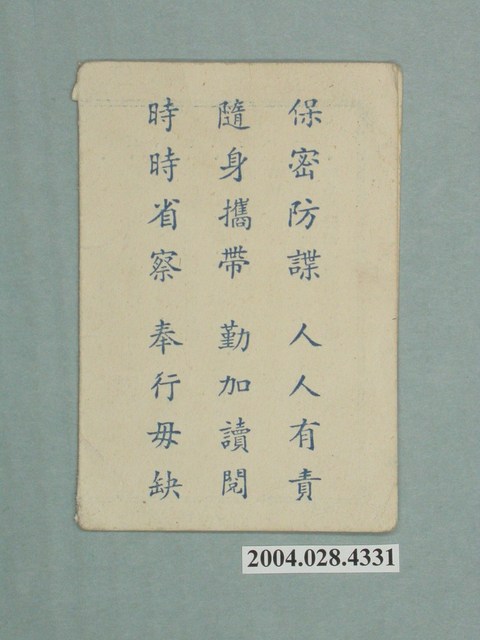 保密防諜 人人有責
隨身攜帶 勤加讀閱
時時省察 奉行毋缺
2004.028.4331